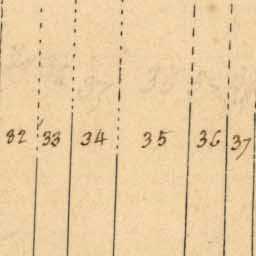 32 33 34 35 36 37